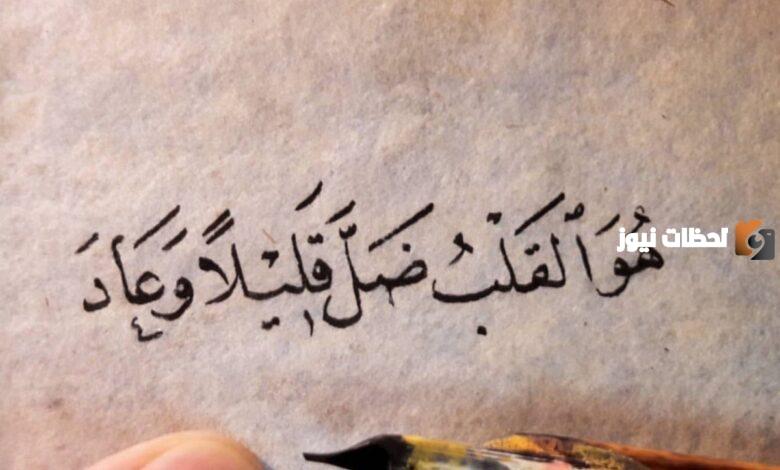 هُوَ ٱلقَلْبُ ضَلَّ قَلِيْلًا وَعَادَ
لحظات نيوز